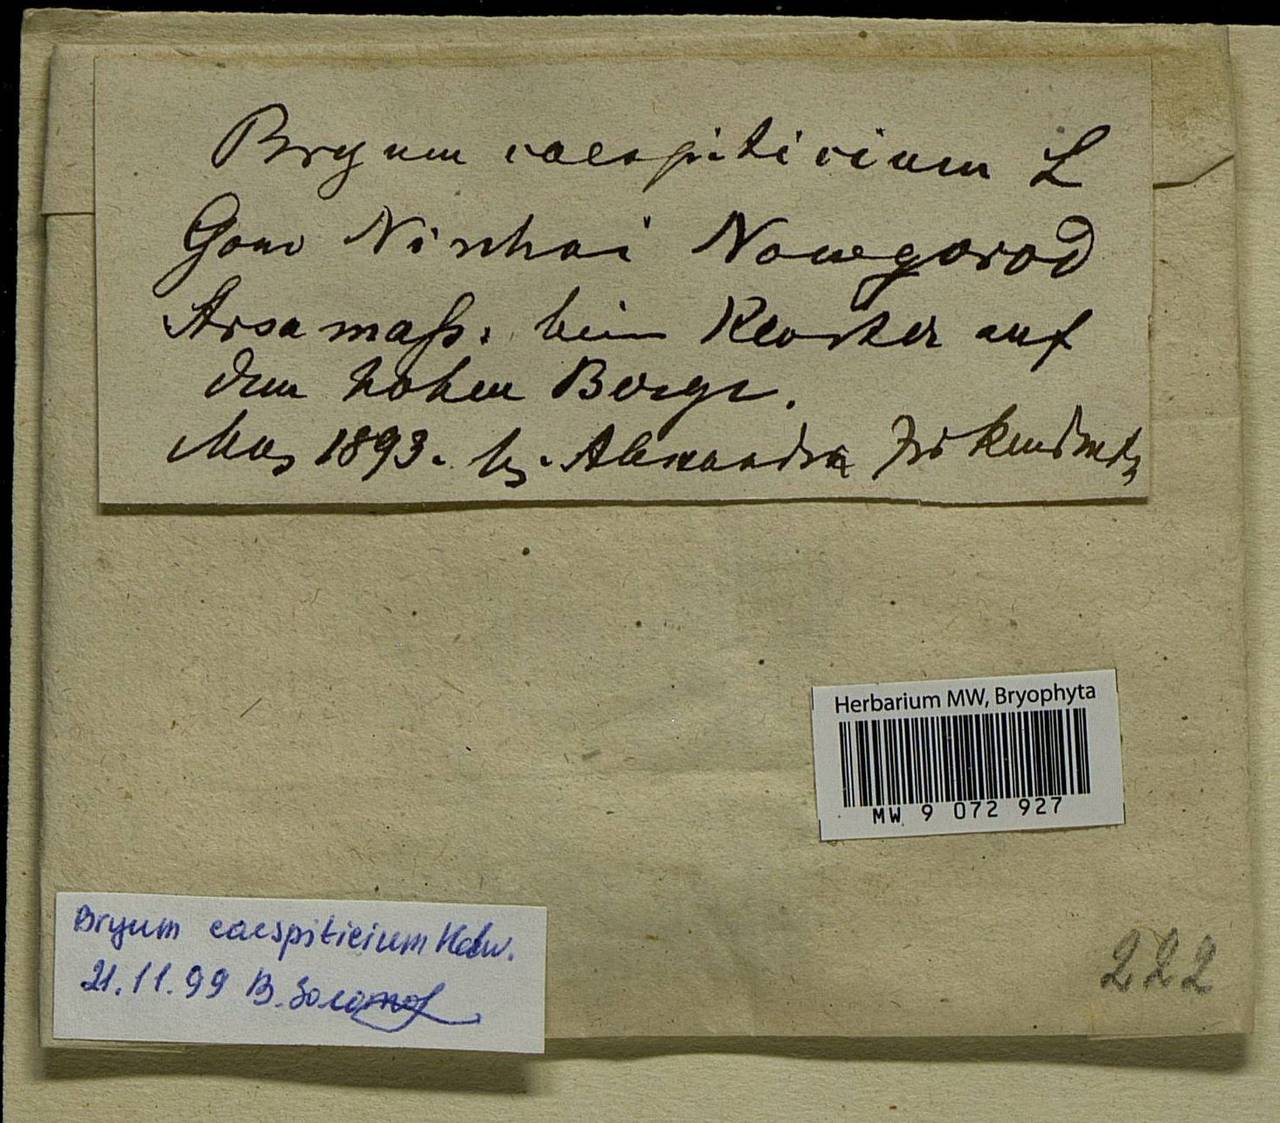 Bryum caespiticium L
Gouv Nischni Nowgorod
Arsamass. beim Kloster auf
dem hohen Berge.
May 1893. lg. Alexandra
Herbarium MW, Bryophyta
MW 9 072 927
Bryum caespiticium Hedw.
21.11.99 В. Золотов
222